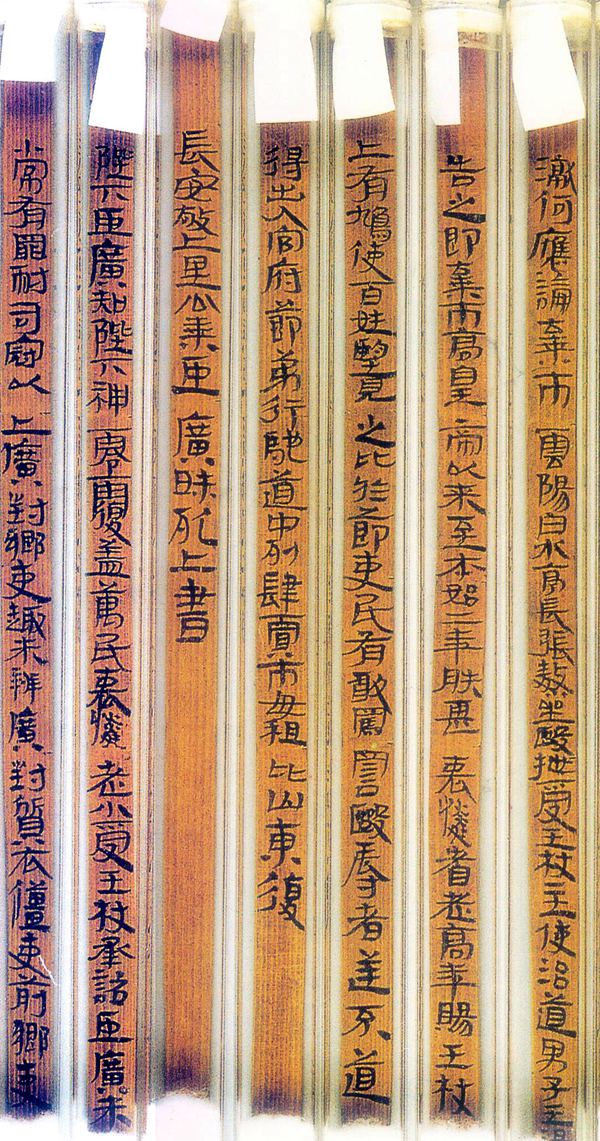 讞何應論棄市雲陽白水亭長張熬坐毆抴受王杖主使治道男子王
告之即棄市高皇帝以來至本始二年朕甚哀憐耆老高年賜王杖
上有鳩使百姓望見之比於節吏民有敢罵詈毆辱者逆不道
得出入官府節弟行馳道中列肆賈市毋租比山東復
長安敬上里公乘臣廣昧死上書
陛下臣廣知陛下神零覆蓋萬民哀憐老小受王杖承詔臣廣未
常有罪耐司寇以上廣對鄉吏趣未辨廣對質衣僵吏前鄉吏